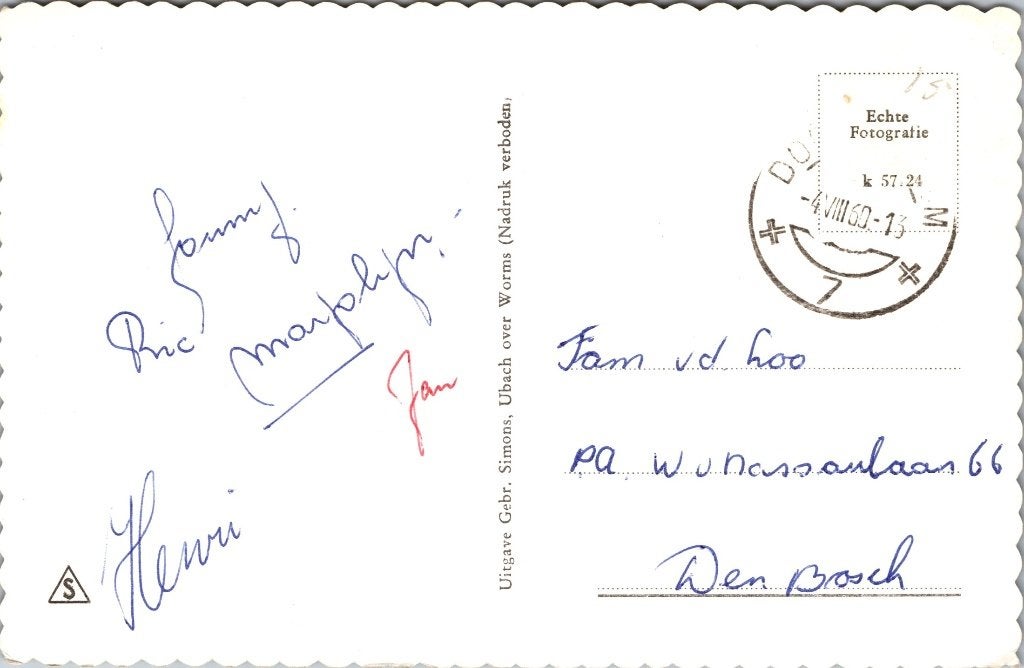 Ric
marjolijn.
Jan
Henri
Uitgave Gebr. Simons, Ubach over Worms (Nadruk verboden)
Echte
Fotografie
k 57.24
-4 VIII 60.-13
7
Fam vd Loo
PA W v Nassaulaan 66
Den Bosch
S